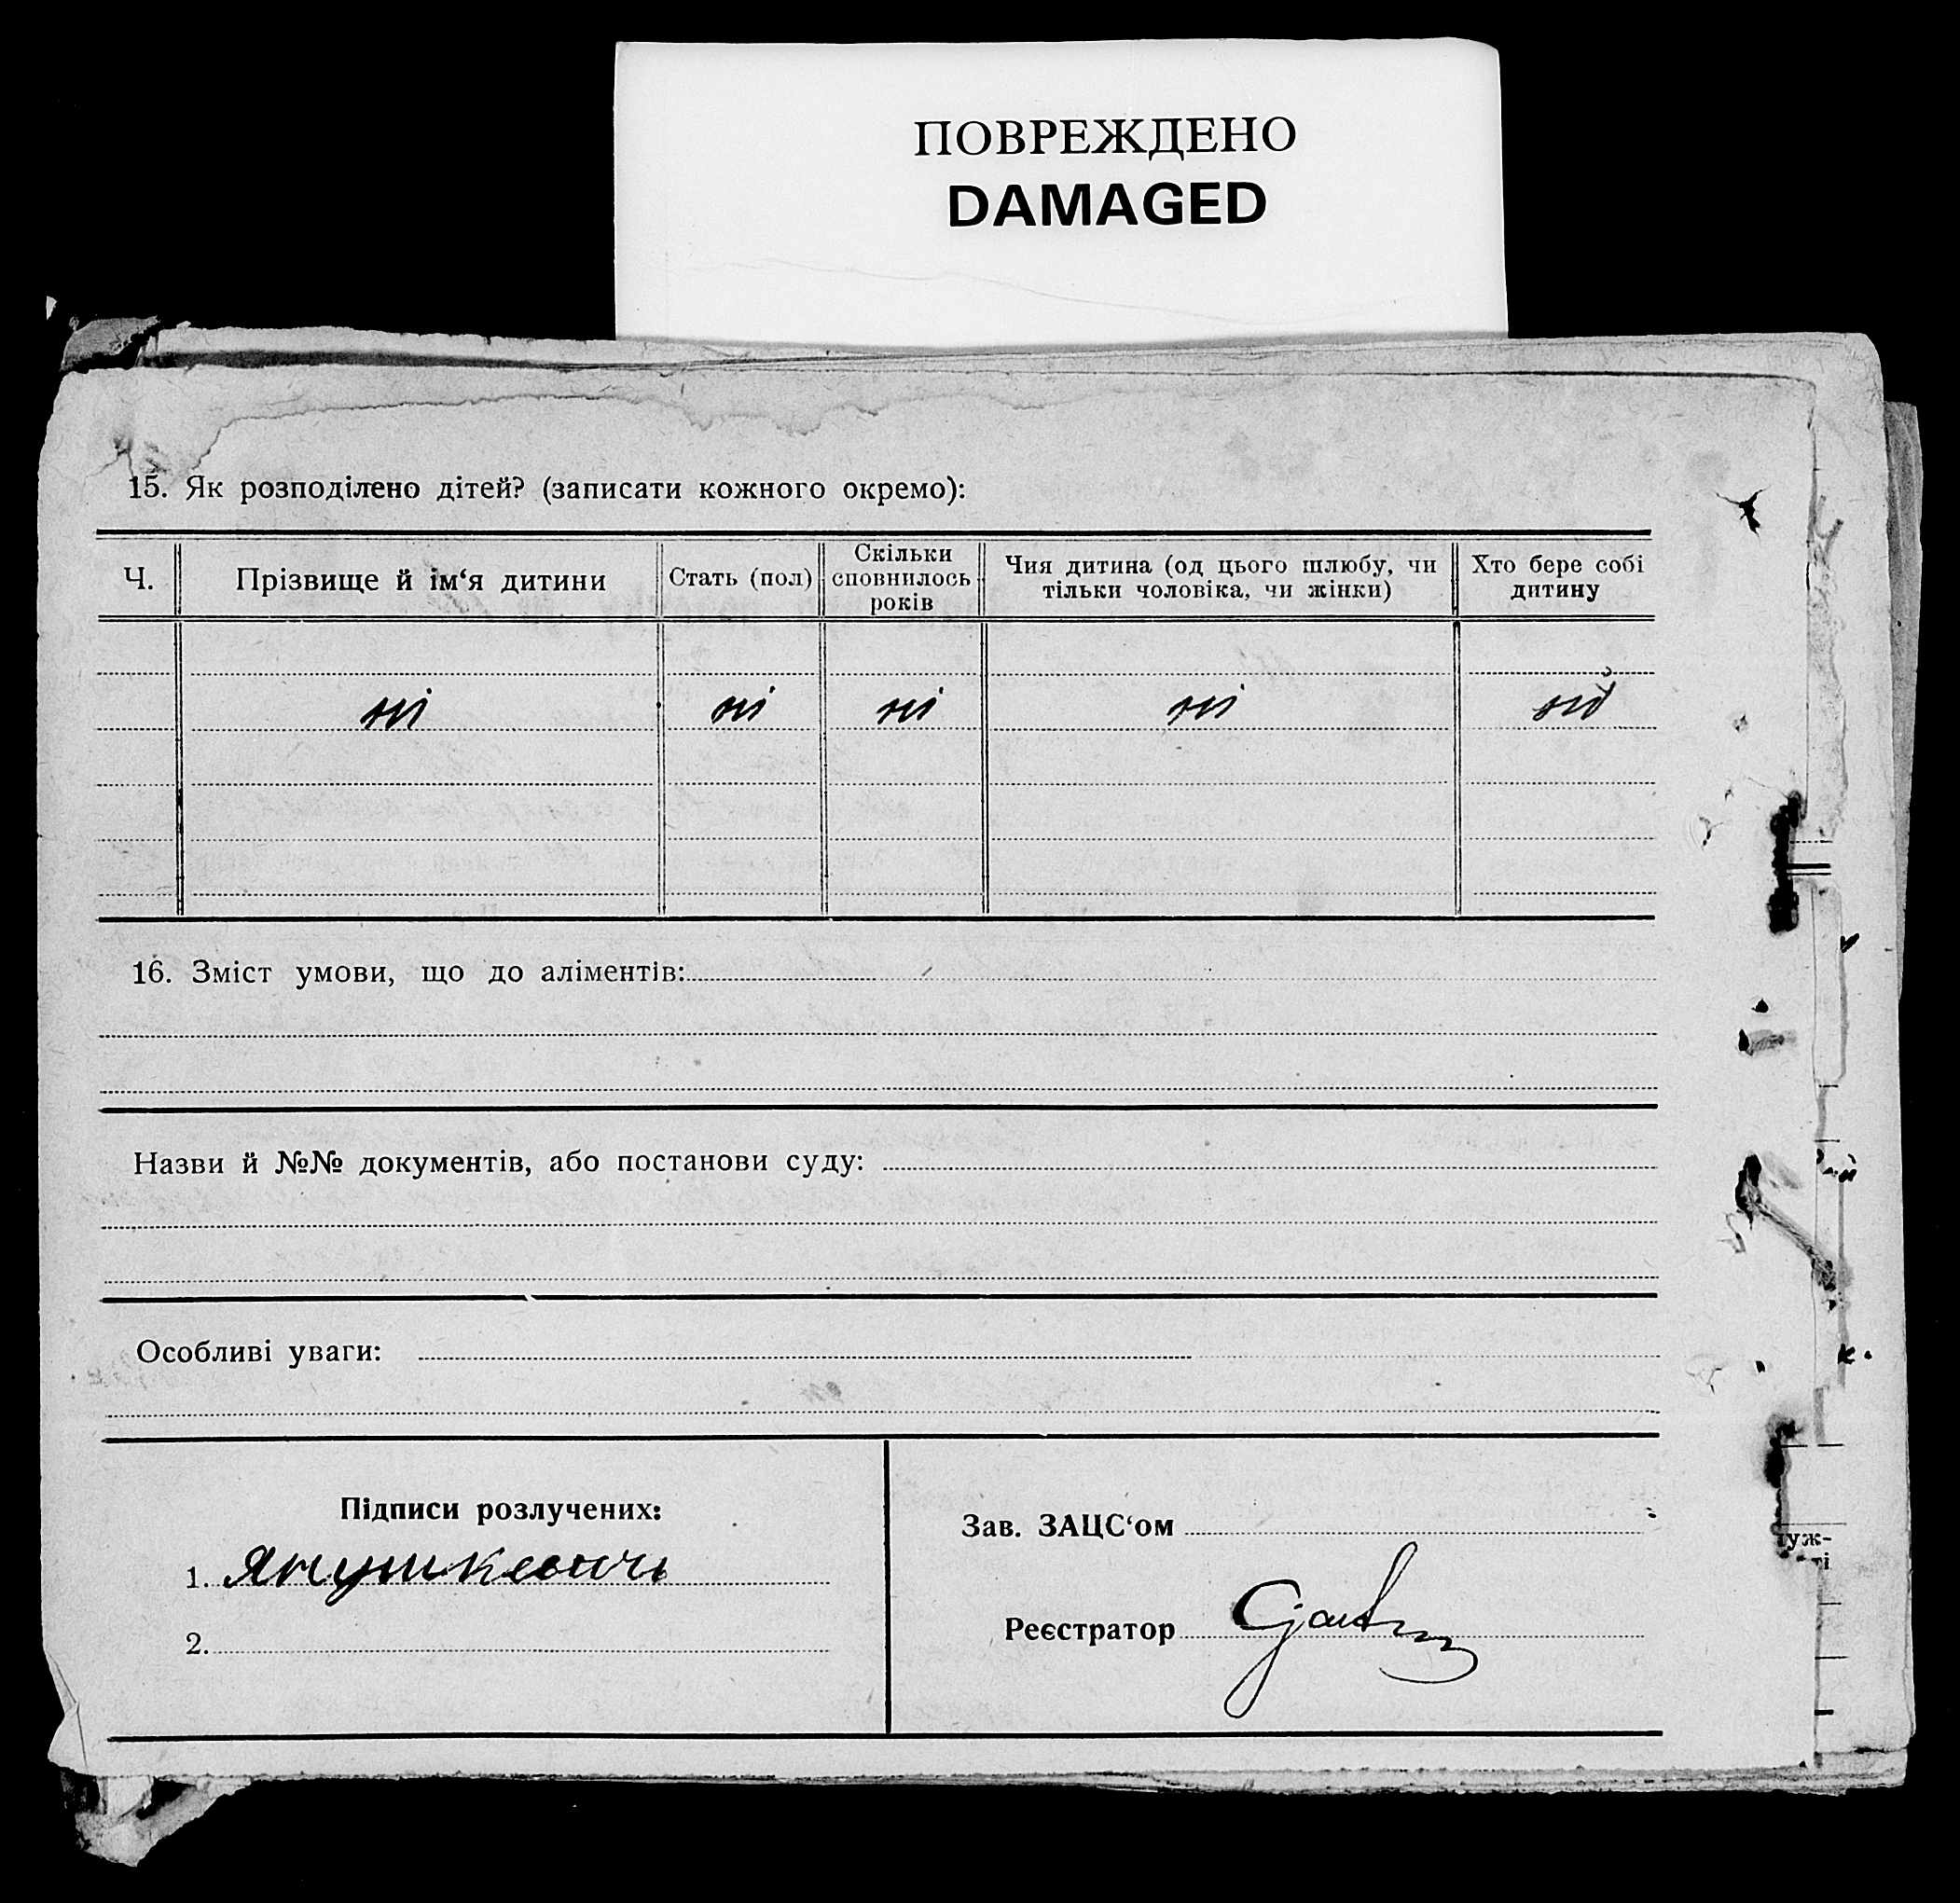 ПОВРЕЖДЕНО
DAMAGED
15. Як розподілено дітей? (записати кожного окремо):
Ч.
Прізвище й ім‘я дитини
Стать (пол)
Скільки
сповнилось
років
Чия дитина (од цього шлюбу, чи
тільки чоловіка, чи жінки)
Хто бере собі
дитину
ні ні ні ні ні
16. Зміст умови, що до аліментів:
Назви й №№ документів, або постанови суду:
Особливі уваги:
Підписи розлучених:
1. Янушкевичь
2.
Зав. ЗАЦС‘ом
Реєстратор